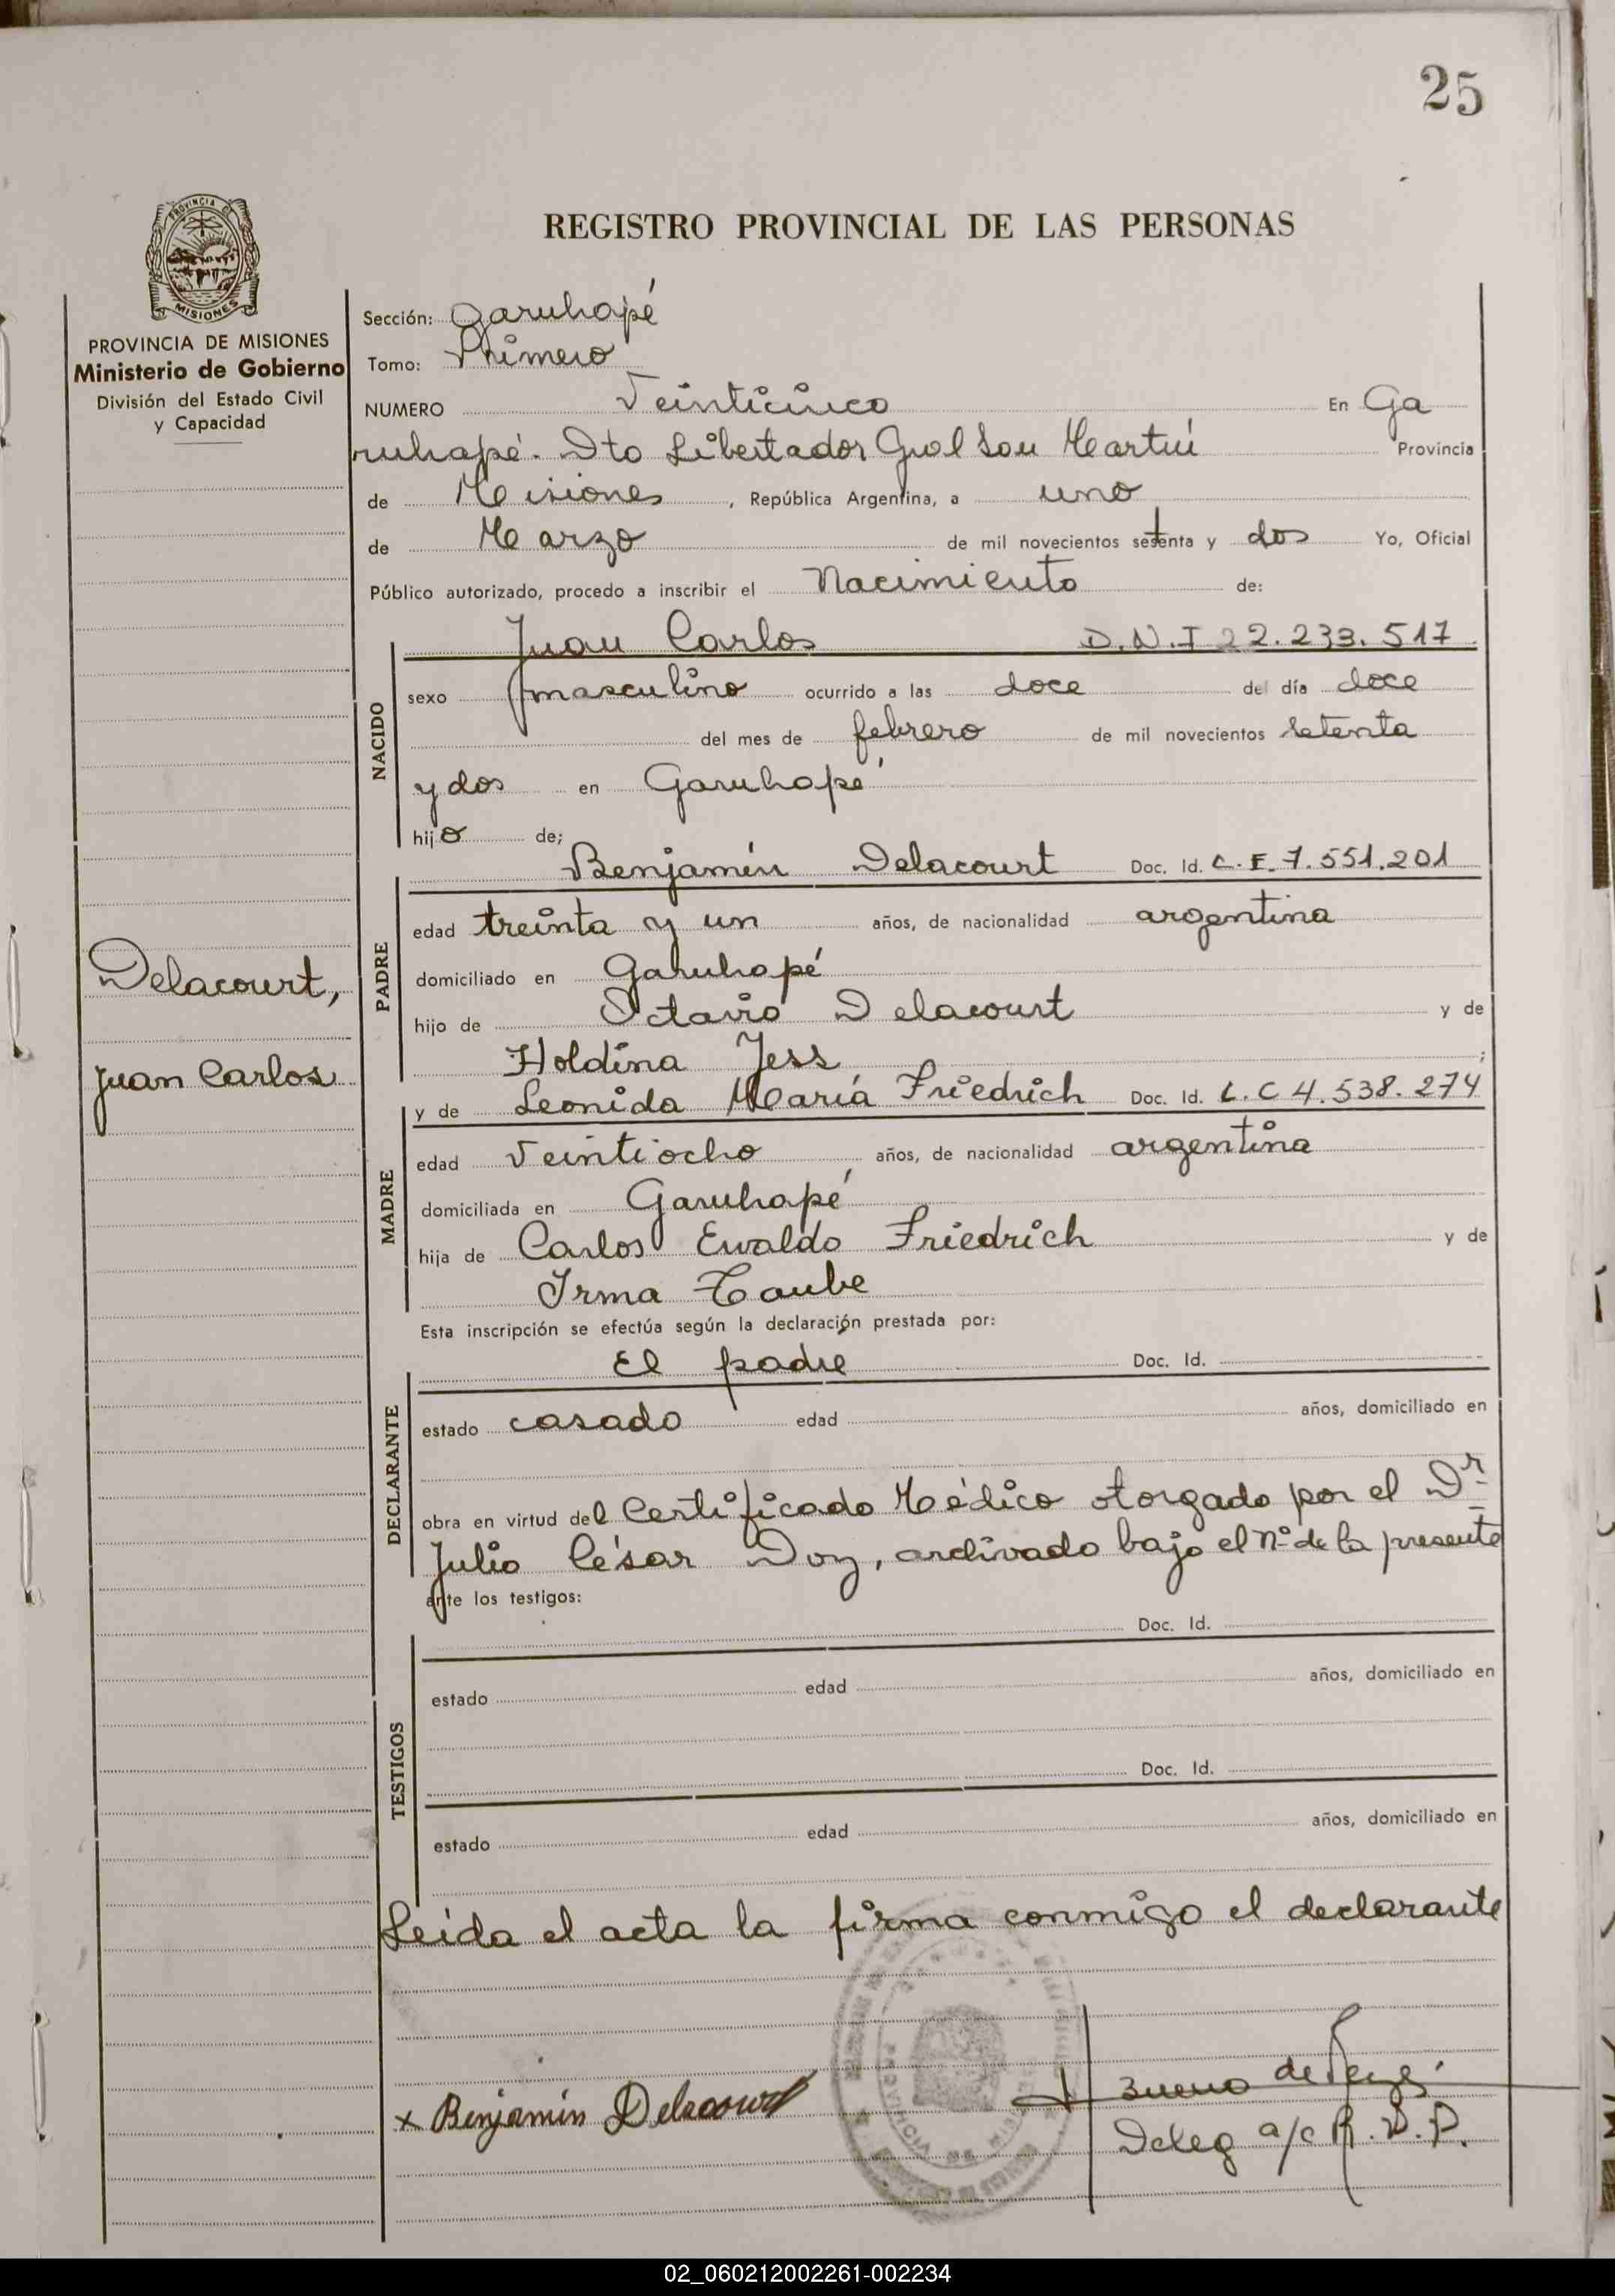 25
REGISTRO PROVINCIAL DE LAS PERSONAS
PROVINCIA DE MISIONES
PROVINCIA DE MISIONES
Ministerio de Gobierno
División del Estado Civil
y Capacidad
Delacourt,
Juan Carlos
Sección: Garuhapé
Tomo: Primero
NUMERO Veinticinco En Ga
ruhapé. Dto Libertador Gral San Martín Provincia
de Misiones, República Argentina, a uno
de Marzo de mil novecientos setenta y dos Yo, Oficial
Público autorizado, procedo a inscribir el Nacimiento de:
NACIDO
Juan Carlos D.N.I 22.233.517
sexo masculino ocurrido a las doce del día doce
del mes de febrero de mil novecientos setenta
y dos en Garuhapé
hijo de;
PADRE
Benjamín Delacourt Doc. Id. C.E. 7.551.201
edad treinta y un años, de nacionalidad argentina
domiciliado en Garuhapé
hijo de Octavio Delacourt y de
Holdina Jess;
MADRE
y de Leonida María Friedrich Doc. Id. L.C 4.538.274
edad Veintiocho años, de nacionalidad argentina
domiciliada en Garuhapé
hija de Carlos Ewaldo Friedrich y de
Irma Taube
Esta inscripción se efectúa según la declaración prestada por:
DECLARANTE
El padre Doc. Id.
estado casado edad años, domiciliado en
obra en virtud del Certificado Médico otorgado por el Dr
Julio César Doy, archivado bajo el Nº de la presente
ante los testigos:
TESTIGOS
Doc. Id.
estado edad años, domiciliado en
Doc. Id.
estado edad años, domiciliado en
Leida el acta la firma conmigo el declarante
x Benjamín Delacourt
Bueno de
Deleg a/c R.D.P.
02_060212002261-002234